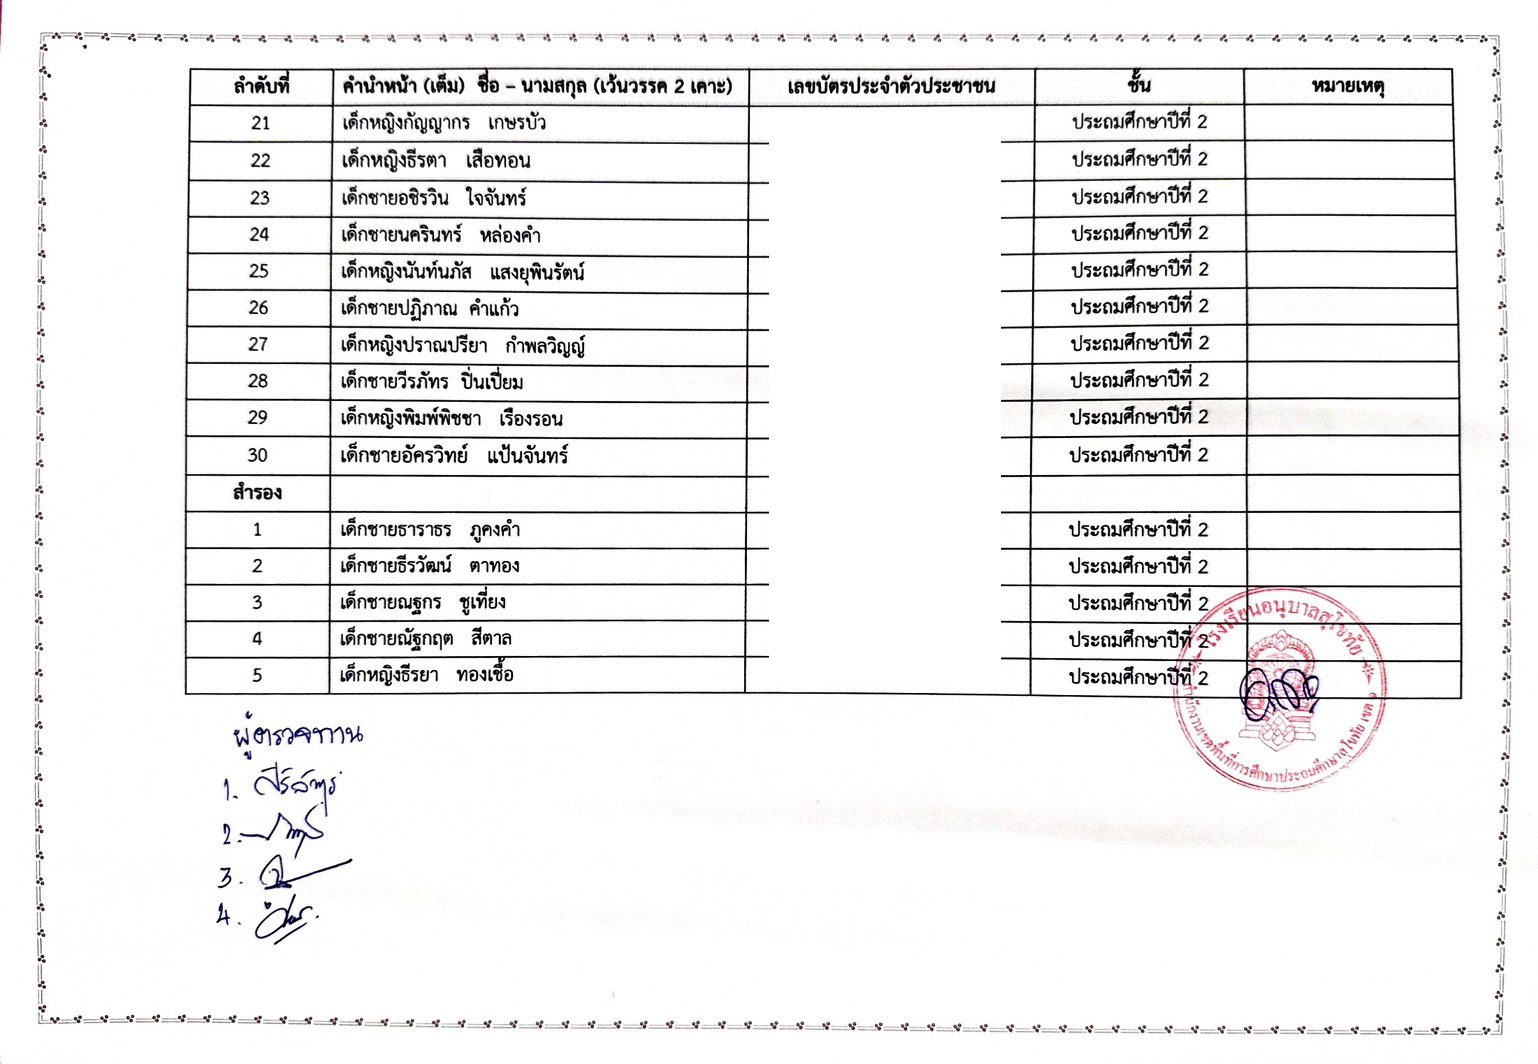 ลำดับที่ คำนำหน้า (เต็ม) ชื่อ – นามสกุล (เว้นวรรค 2 เคาะ) เลขบัตรประจำตัวประชาชน ชั้น หมายเหตุ
21 เด็กหญิงกัญญากร เกษรบัว ประถมศึกษาปีที่ 2
22 เด็กหญิงธีรตา เสือทอน ประถมศึกษาปีที่ 2
23 เด็กชายอชิรวิน ใจจันทร์ ประถมศึกษาปีที่ 2
24 เด็กชายนครินทร์ หล่องคำ ประถมศึกษาปีที่ 2
25 เด็กหญิงนันท์นภัส แสงยุพินรัตน์ ประถมศึกษาปีที่ 2
26 เด็กชายปฏิภาณ คำแก้ว ประถมศึกษาปีที่ 2
27 เด็กหญิงปราณปรียา กำพลวิญญ์ ประถมศึกษาปีที่ 2
28 เด็กชายวีรภัทร ปิ่นเปี่ยม ประถมศึกษาปีที่ 2
29 เด็กหญิงพิมพ์พิชชา เรืองรอน ประถมศึกษาปีที่ 2
30 เด็กชายอัครวิทย์ แป้นจันทร์ ประถมศึกษาปีที่ 2
สำรอง
1 เด็กชายธาราธร ภูคงคำ ประถมศึกษาปีที่ 2
2 เด็กชายธีรวัฒน์ ตาทอง ประถมศึกษาปีที่ 2
3 เด็กชายณฐกร ชูเที่ยง ประถมศึกษาปีที่ 2
4 เด็กชายณัฐกฤต สีตาล ประถมศึกษาปีที่ 2
5 เด็กหญิงธีรยา ทองเชื้อ ประถมศึกษาปีที่ 2
โรงเรียนอนุบาลสุโขทัย
สำนักงานเขตพื้นที่การศึกษาประถมศึกษาสุโขทัย เขต ๑
ผู้ตรวจทาน
1.
2.
3.
4.